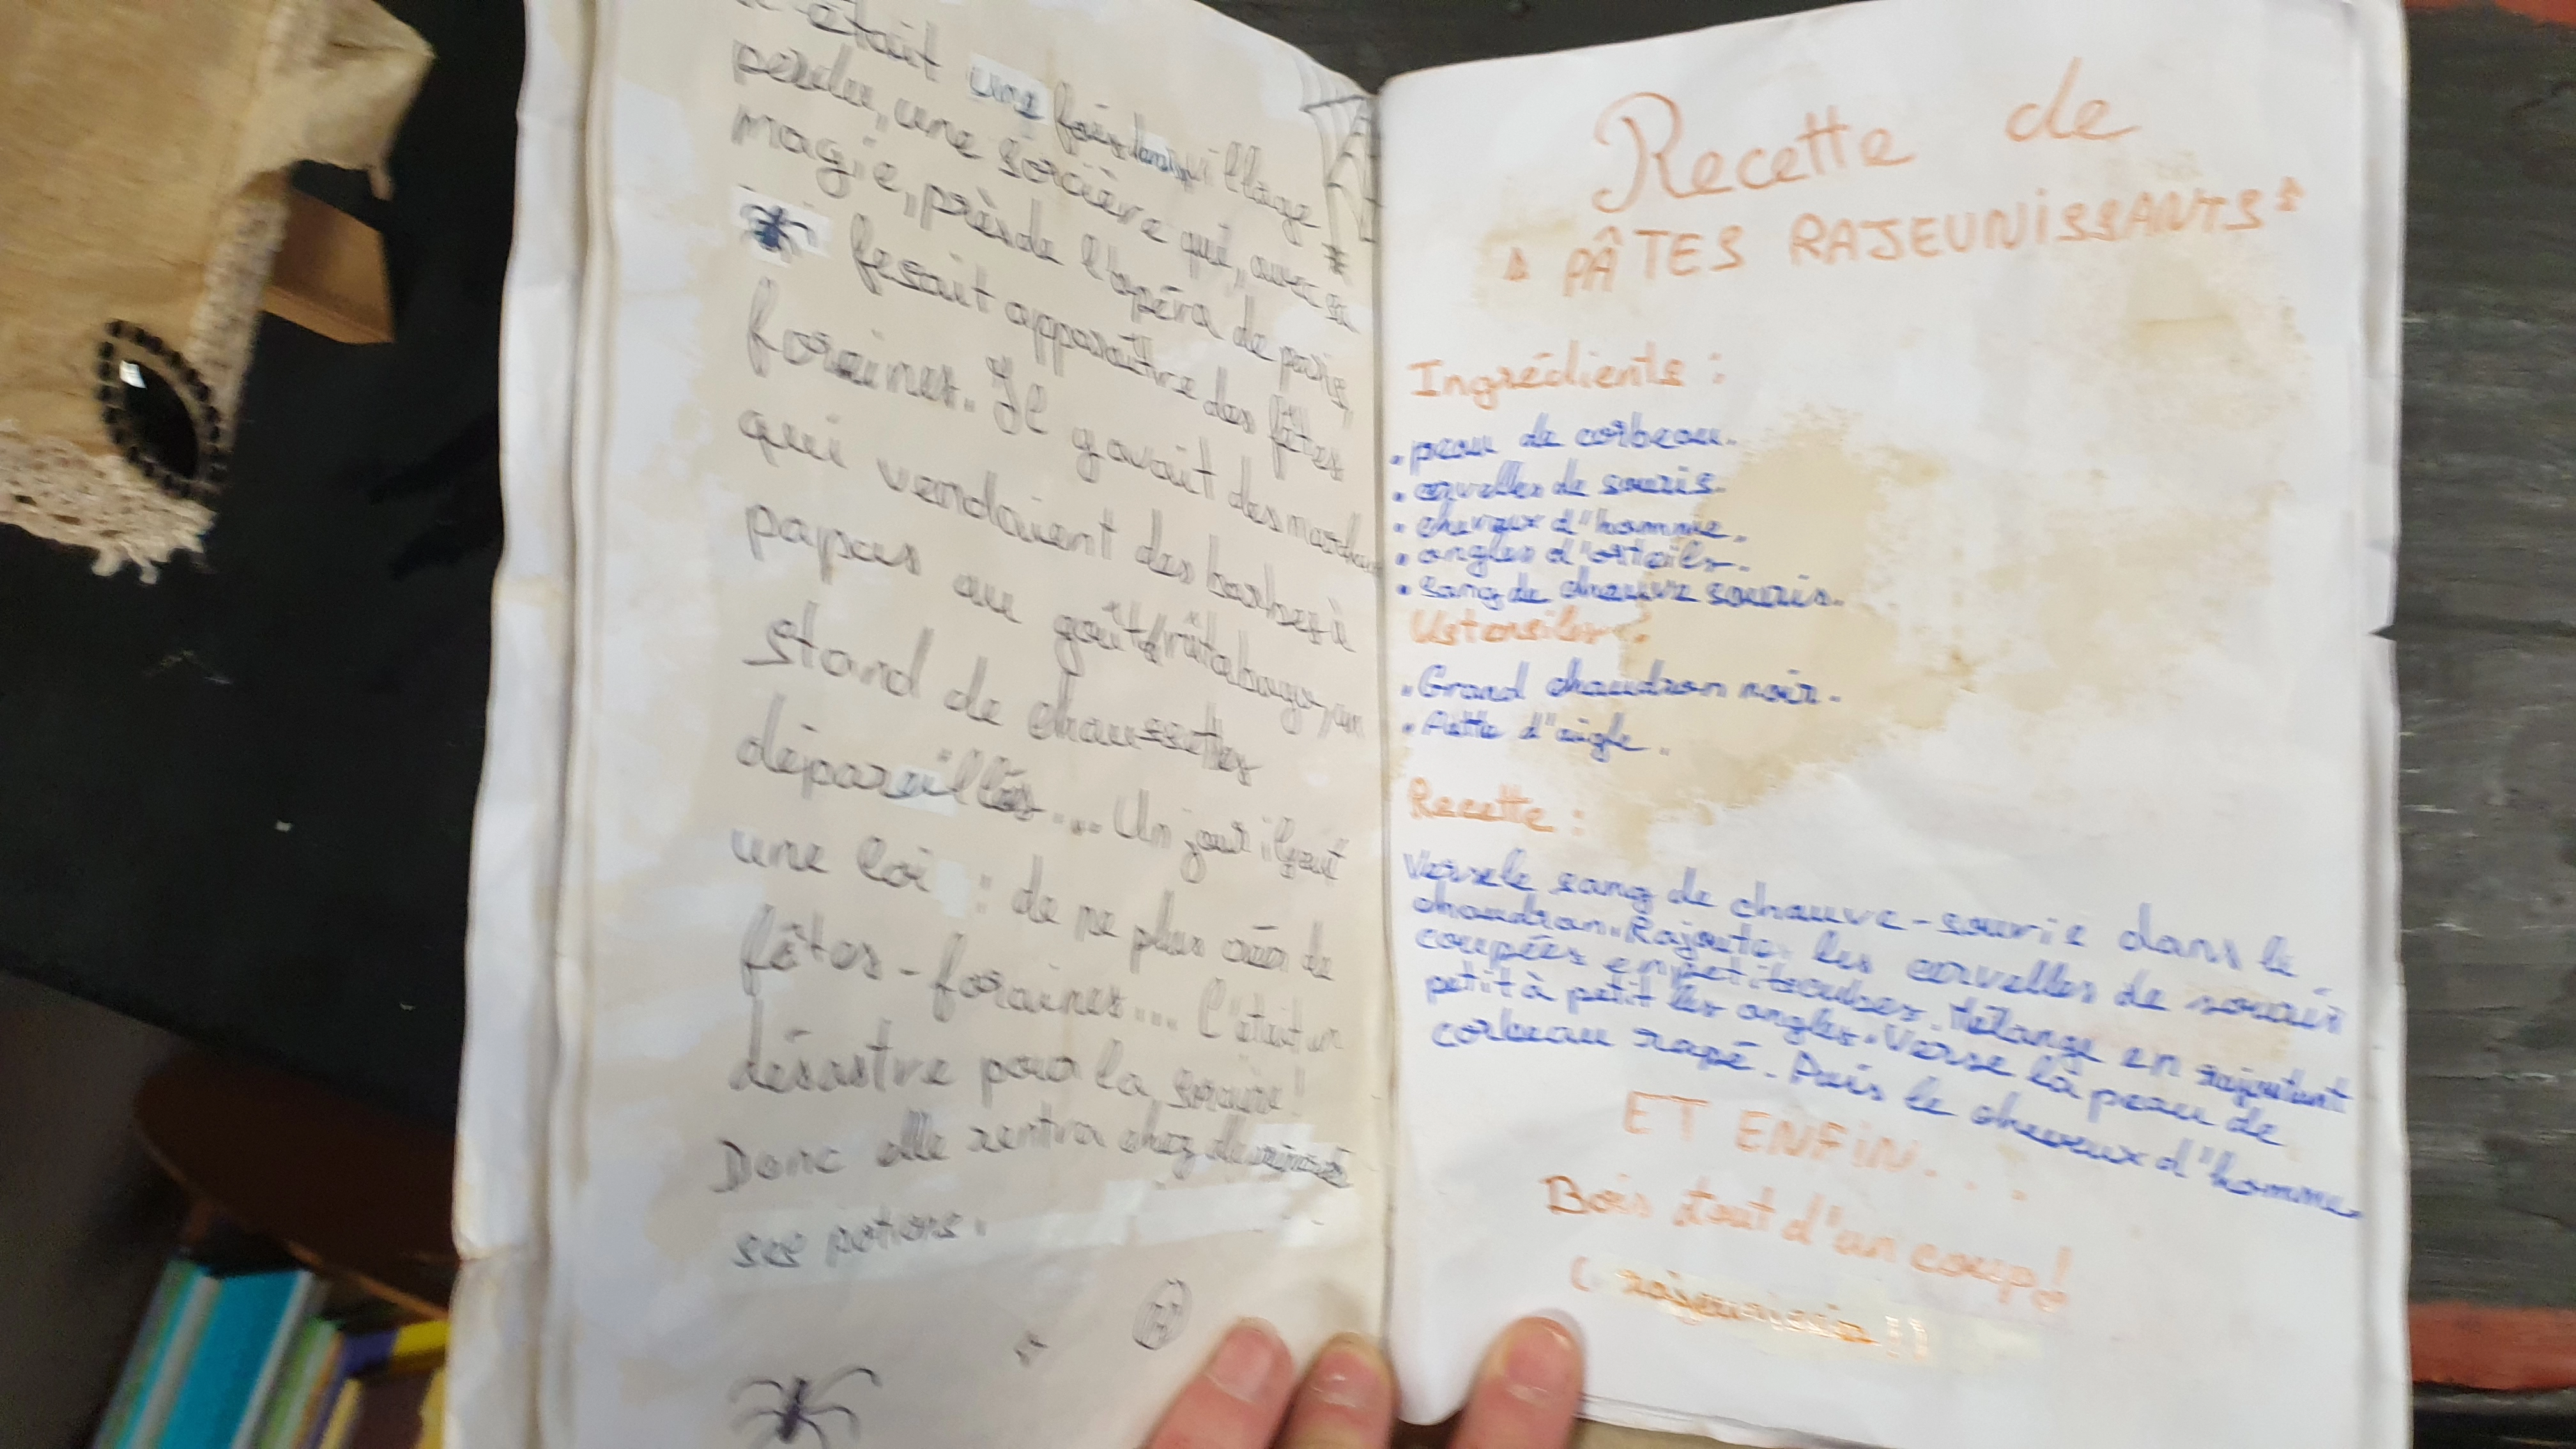 était une fois dans village
perdu, une sorcière qui, avec sa
magie, près de l'opéra de paris,
fesait apparaître des fêtes
foraines. Il y avait des
qui vendaient des barbes à
papas au goût rûtabaga, un
stand de chaussettes
dépareillés... Un jour il y eut
une loi : de ne plus créer de
fêtes-foraines... C'était un
désastre pour la sorcière!
Donc elle rentra chez elle
ses potions.
Recette de
PÂTES RAJEUNISSANTS
Ingrédients :
• peau de corbeau.
• cervelles de souris.
• cheveux d'homme.
• ongles d'orteils.
• sang de chauve souris.
Ustensiles :
• Grand chaudron noir.
• Patte d'aigle.
Recette :
Verse le sang de chauve-sourie dans le
chaudron. Rajoute les cervelles de souris
coupées en petits cubes. Mélange en rajoutant
petit à petit les ongles. Verse la peau de
corbeau rapé. Puis le cheveux d'homme.
ET ENFIN...
Bois tout d'un coup!